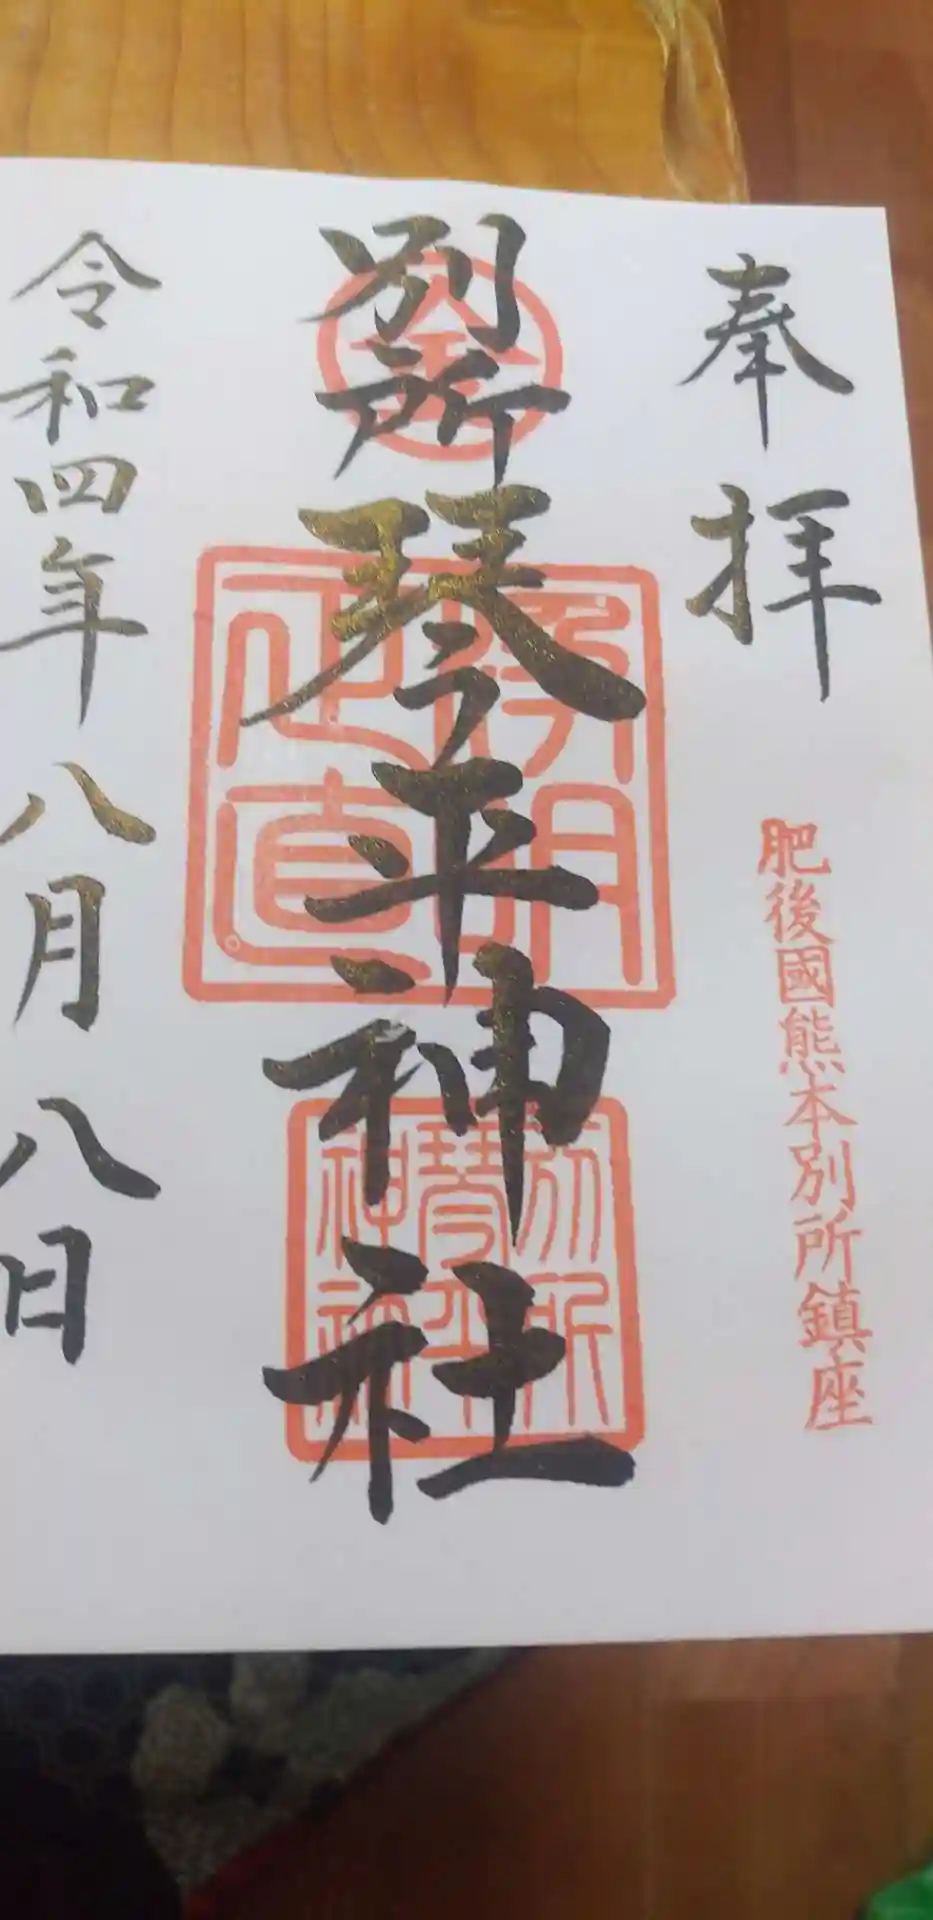 奉拝
肥後國熊本別所鎮座
別所琴平神社
令和四年八月八日
別所
琴平
神社